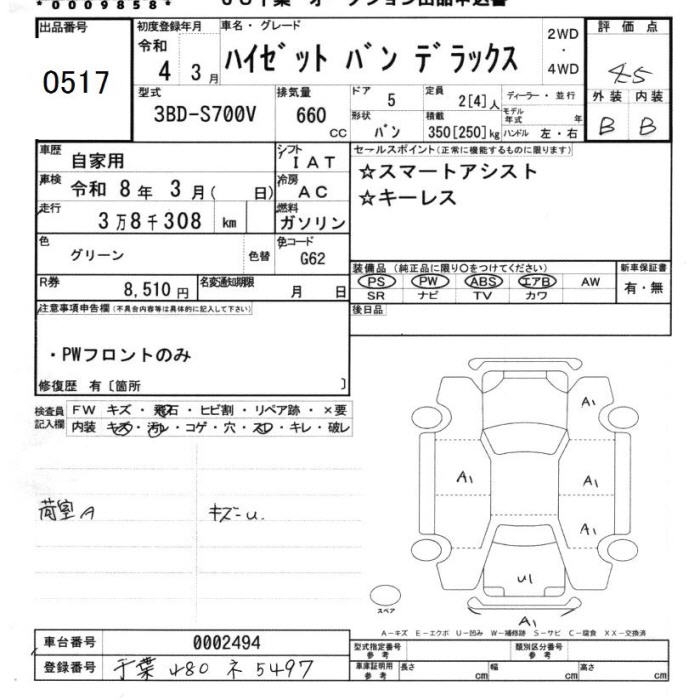 *0009858*
出品番号
0517
初度登録年月
令和
4 3月
車名・グレード
ハイゼット バン デラックス
2WD
・
4WD
評価点
4.5
外装 内装
B B
型式
3BD-S700V
排気量
660
CC
ドア
5
形状
バン
定員
2[4]人
積載
350[250]kg
ディーラー・並行
モデル年式 年
ハンドル 左・右
車歴
自家用
シフト
IAT
車検
令和 8年 3月( 日)
冷房
AC
走行
3万8千308 km
燃料
ガソリン
色
グリーン
色替
色コード
G62
R券
8,510円
名変通知期限
月 日
セールスポイント(正常に機能するものに限ります)
☆スマートアシスト
☆キーレス
装備品(純正品に限り○をつけてください)
PS PW ABS エアB AW
SR ナビ TV カワ
新車保証書
有・無
後日品
注意事項申告欄(不具合内容等は具体的に記入して下さい)
・PWフロントのみ
修復歴 有〔箇所 〕
検査員
記入欄
FW キズ・飛石・ヒビ割・リペア跡・×要
内装 キズ・汚レ・コゲ・穴・スレ・キレ・破レ
荷室A
キズ-U
A1
A1
A1
A1
U1
A1
スペア
A−キズ E−エクボ U−凹み W−補修跡 S−サビ C−腐食 XX−交換済
車台番号
0002494
登録番号
千葉 480 ネ 5497
型式指定番号
参考
類別区分番号
参考
車庫証明用
参考
長さ cm
幅 cm
高さ cm